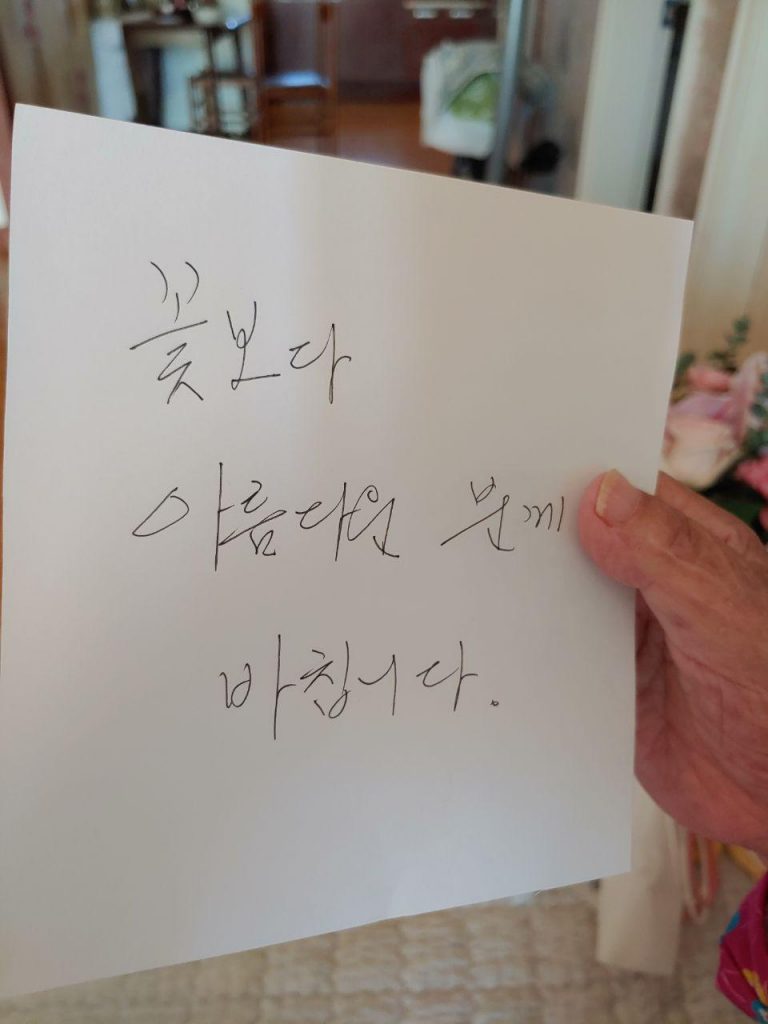 꽃보다
아름다운 분께
바칩니다.